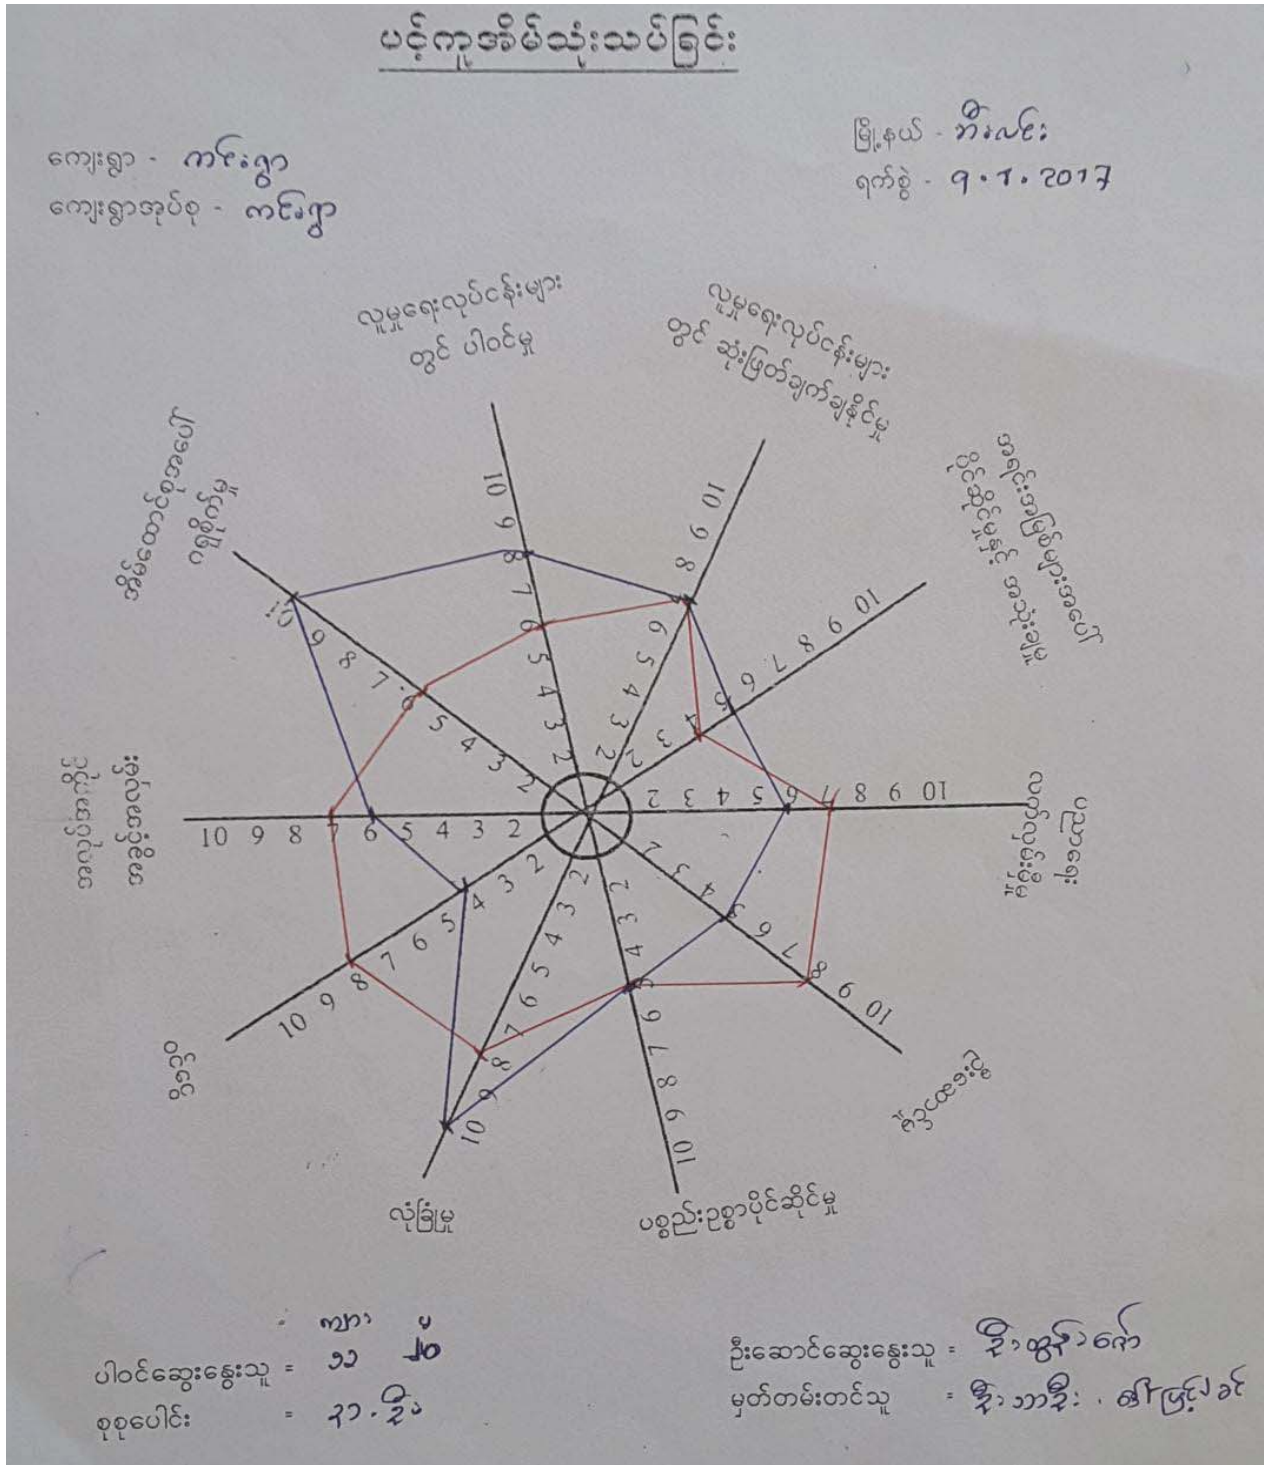 ပင့်ကူအိမ်သုံးသပ်ခြင်း
မြို့နယ် - ဘီးလင်း
ရက်စွဲ - 9.1.2017
ကျေးရွာ - ကင်းရွာ
ကျေးရွာအုပ်စု - ကင်းရွာ
လူမှုရေးလုပ်ငန်းများ
တွင် ပါဝင်မှု
လူမှုရေးလုပ်ငန်းများ
တွင် ဆုံးဖြတ်ချက်ချနိုင်မှု
အရင်းအမြစ်များအပေါ်
ပိုင်ဆိုင်မှုနှင့် အသုံးချမှု
ပညာရေး
ကျွမ်းကျင်မှု
ပစ္စည်းဥစ္စာပိုင်ဆိုင်မှု
လုံခြုံမှု
ဝင်ငွေ
အလုပ်အကိုင်
အခွင့်အလမ်း
အိမ်ထောင်စုအပေါ်
10 9 8 7 6 5 4 3 2
10 9 8 7 6 5 4 3 2
10 9 8 7 6 5 4 3 2
10 9 8 7 6 5 4 3 2
10 9 8 7 6 5 4 3 2
10 9 8 7 6 5 4 3 2
10 9 8 7 6 5 4 3 2
10 9 8 7 6 5 4 3 2
10 9 8 7 6 5 4 3 2
10 9 8 7 6 5 4 3 2
ကျား မ
ပါဝင်ဆွေးနွေးသူ = ၁၁ ၂၀
စုစုပေါင်း = ၃၁ ဦး
ဦးဆောင်ဆွေးနွေးသူ = ဦးထွန်းဇော်
မှတ်တမ်းတင်သူ = ဦးဘာဦး